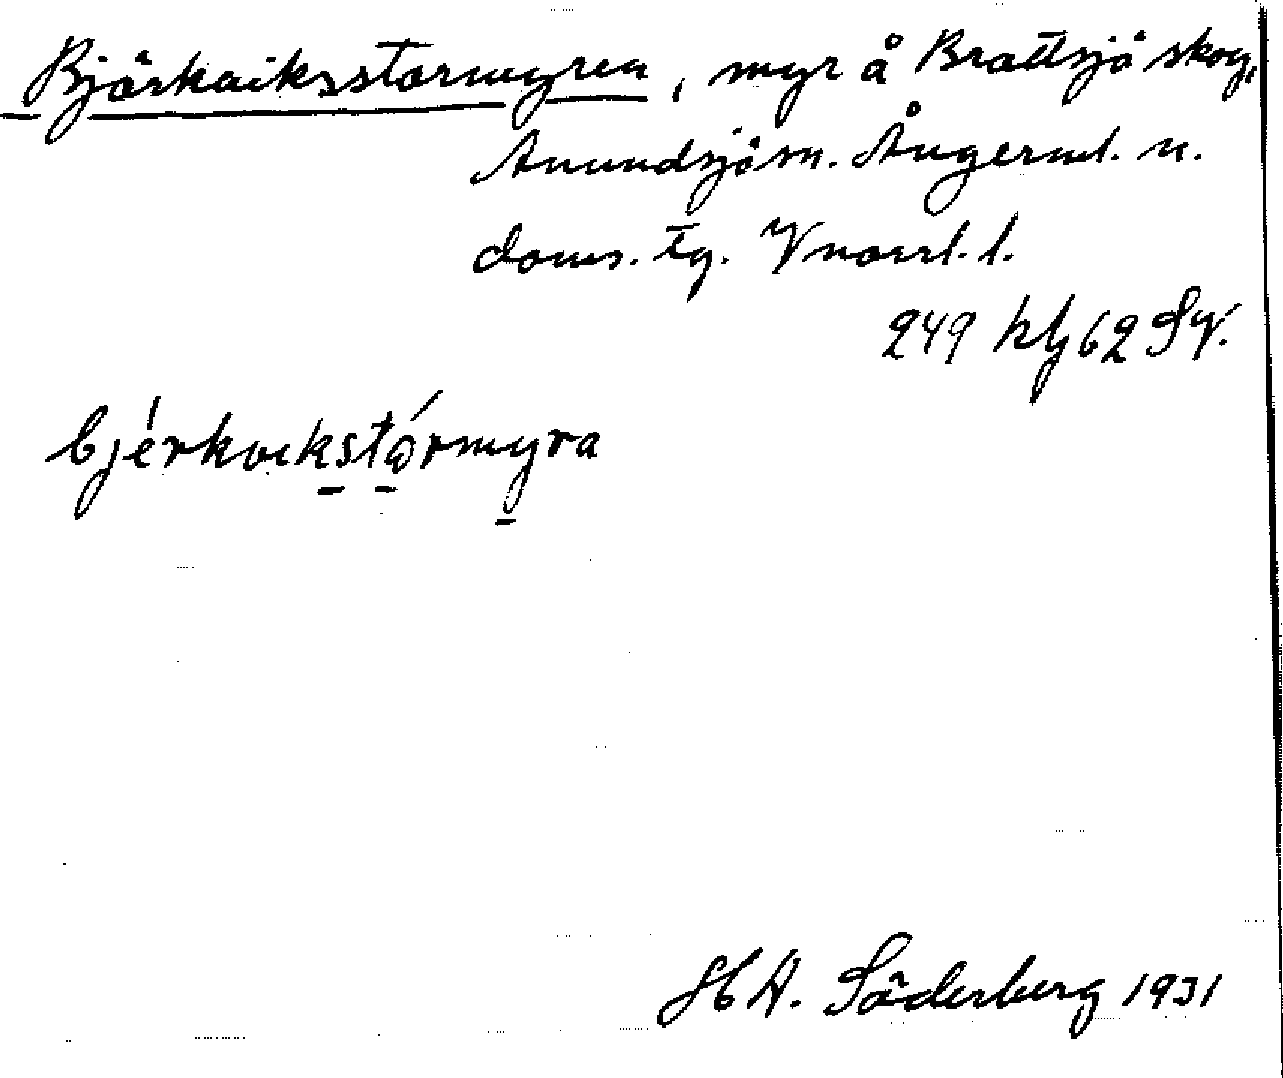 Björkviksstormyren, myr å Brattsjö skog,
Anundsjö sn. Ångerml. n.
doms. tg. Vnorrl. l.
249 63/62 SV.
bjérkvikstórmyra
H A. Söderberg 1931